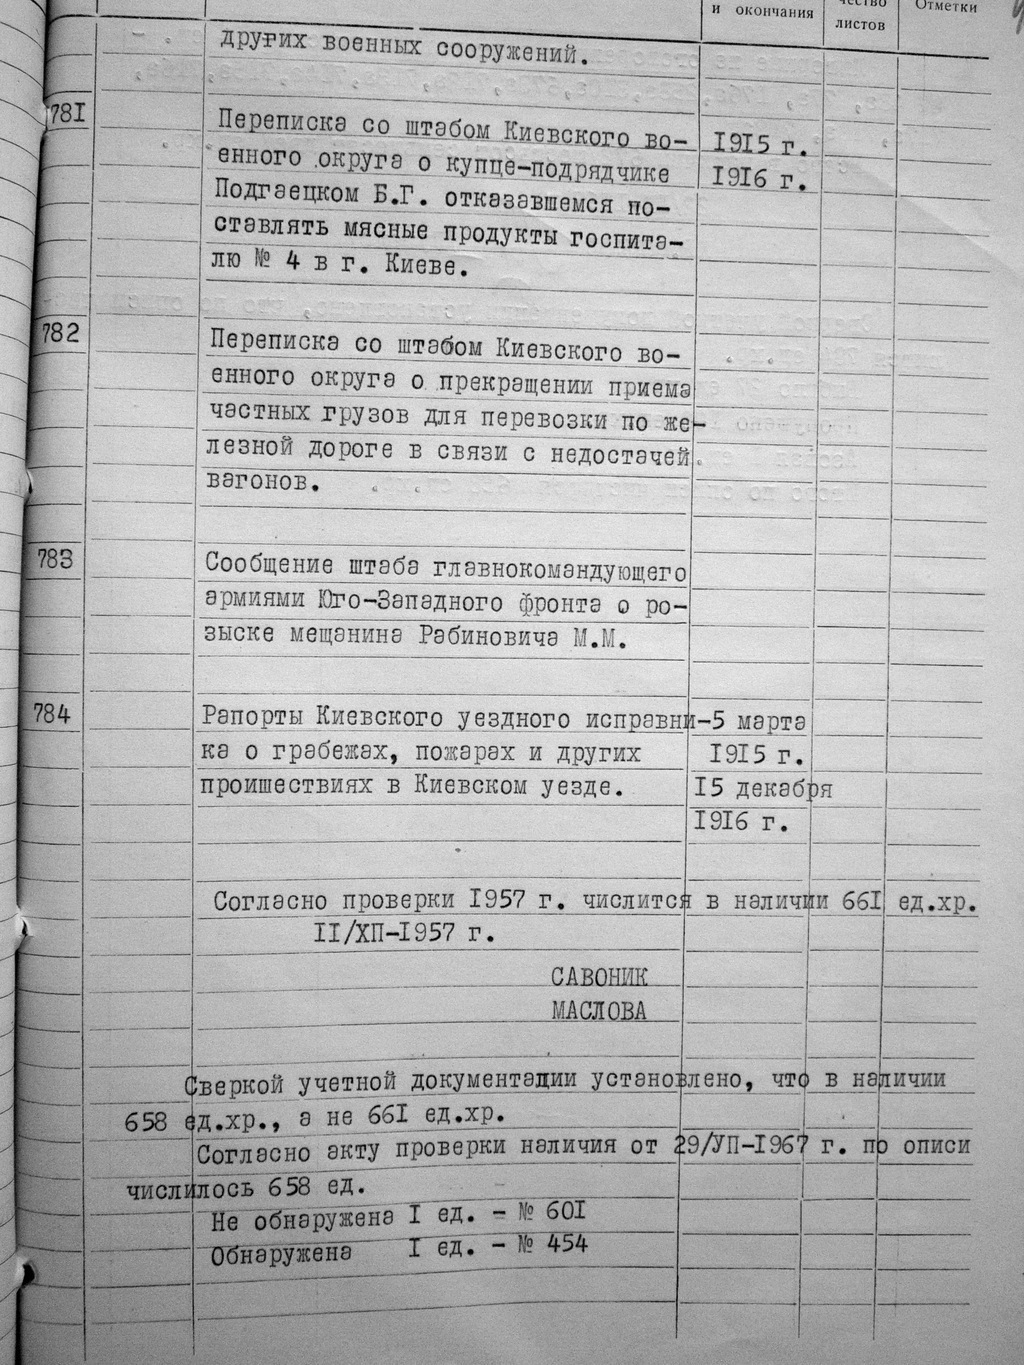 и окончания
чество
листов
Отметки
других военных сооружений.
781
Переписка со штабом Киевского во-
1915 г.
енного округа о купце-подрядчике
1916 г.
Подгаецком Б.Г. отказавшемся по-
ставлять мясные продукты госпита-
лю № 4 в г. Киеве.
782
Переписка со штабом Киевского во-
енного округа о прекращении приема
частных грузов для перевозки по же-
лезной дороге в связи с недостачей
вагонов.
783
Сообщение штаба главнокомандующего
армиями Юго-Западного фронта о ро-
зыске мещанина Рабиновича М.М.
784
Рапорты Киевского уездного исправни-5 марта
ка о грабежах, пожарах и других
1915 г.
проишествиях в Киевском уезде.
15 декабря
1916 г.
Согласно проверки 1957 г. числится в наличии 661 ед.хр.
II/ХП-1957 г.
САВОНИК
МАСЛОВА
Сверкой учетной документации установлено, что в наличии
658 ед.хр., а не 661 ед.хр.
Согласно акту проверки наличия от 29/УП-1967 г. по описи
числилось 658 ед.
Не обнаружена I ед. - № 601
Обнаружена I ед. - № 454